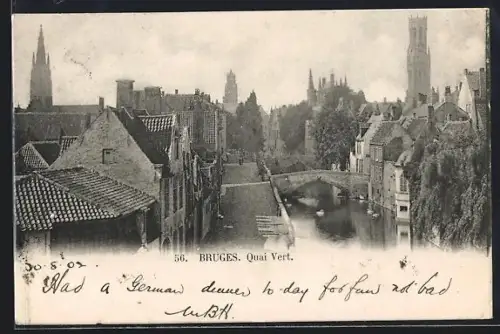 56. BRUGES. Quai Vert.
30.8.02
Had a German dinner to-day for fun not bad